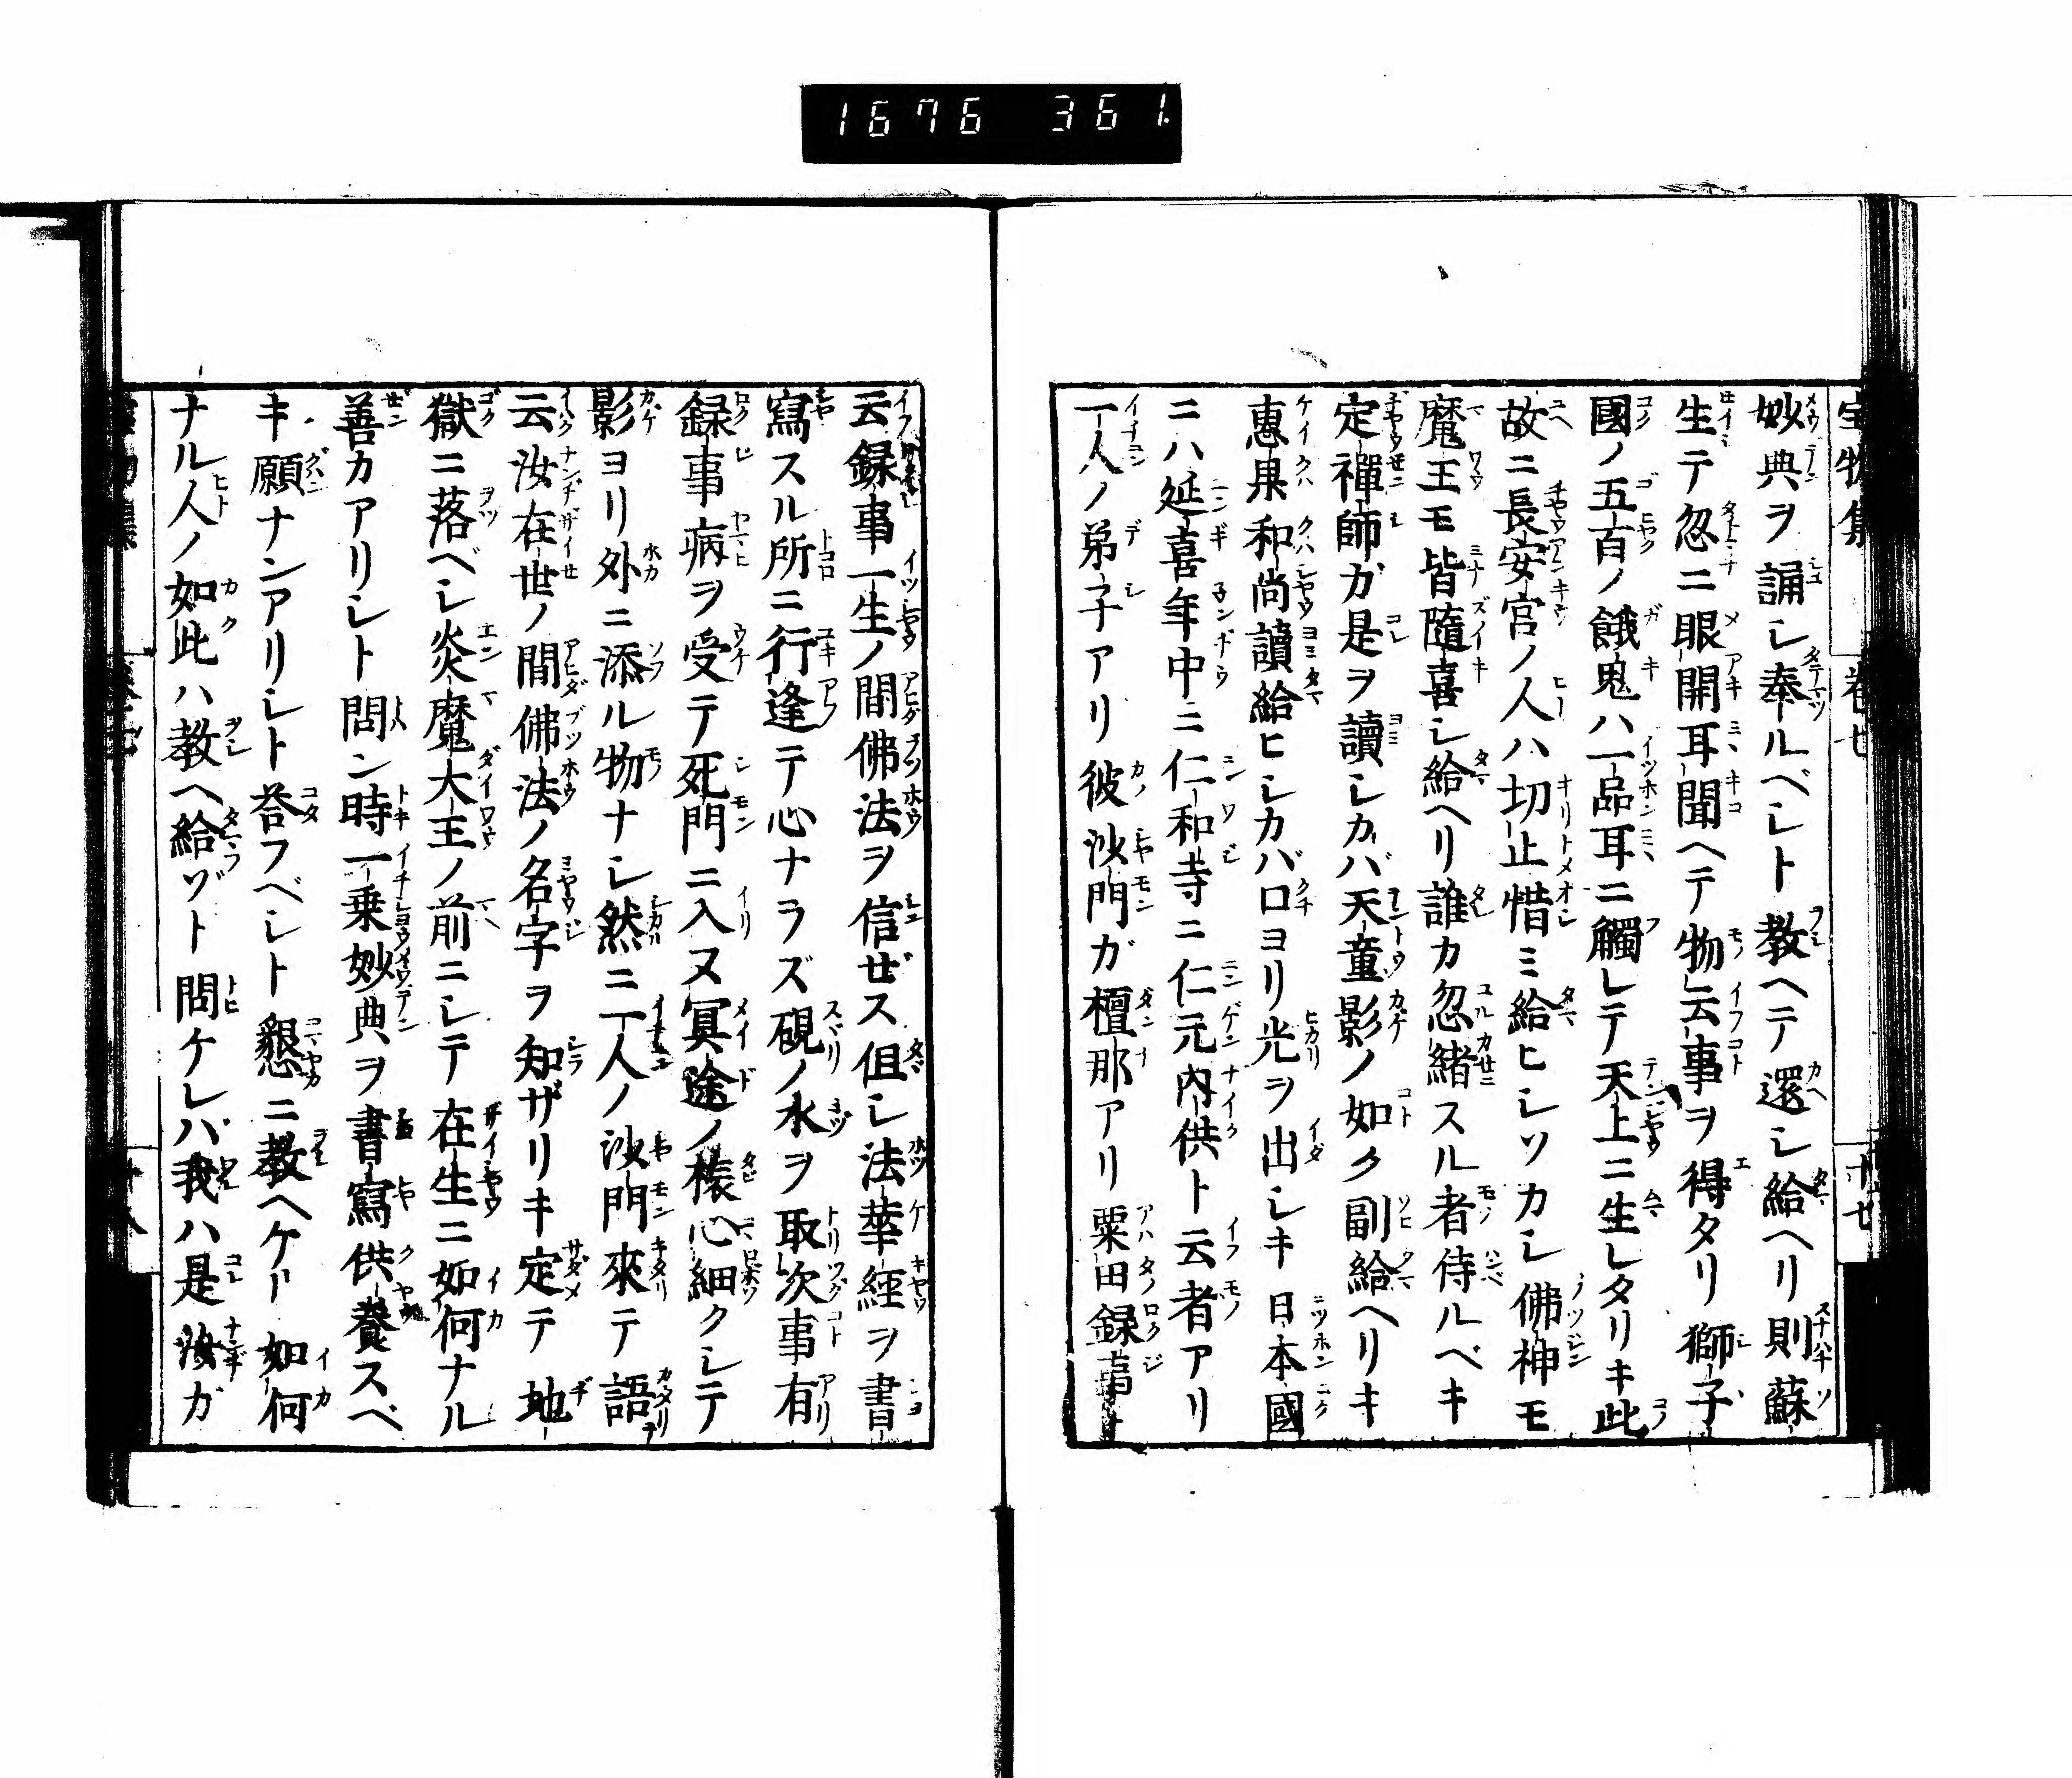 1676 361.
宝物集 巻七 十七
妙典ヲ誦シ奉ルベシト教ヘテ還シ給ヘリ則蘇
生テ忽ニ眼開耳聞ヘテ物云事ヲ得タリ獅子
國ノ五百ノ餓鬼ハ一品耳ニ觸レテ天上ニ生レタリキ此
故ニ長安宮ノ人ハ切止惜ミ給ヒシソカシ佛神モ
魔王モ皆隨喜シ給ヘリ誰カ忽緒スル者侍ルベキ
定禪師ガ是ヲ讀シカバ天童影ノ如ク副給ヘリキ
惠果和尚讀給ヒシカバ口ヨリ光ヲ出シキ日本國
ニハ延喜年中ニ仁和寺ニ仁元内供ト云者アリ
一人ノ弟子アリ彼沙門ガ檀那アリ粟田録事ト
云録事一生ノ間佛法ヲ信ぜス但シ法華經ヲ書
寫スル所ニ行逢テ心ナラズ硯ノ水ヲ取次事有
録事病ヲ受テ死門ニ入ヌ冥途ノ旅心細クシテ
影ヨリ外ニ添ル物ナシ然ニ一人ノ沙門來テ語
云汝在世ノ間佛法ノ名字ヲ知ザリキ定テ地
獄ニ落ベシ炎魔大王ノ前ニシテ在生ニ如何ナル
善カアリシト問ン時一乗妙典ヲ書寫供養スベ
キ願ナンアリシト荅フベシト懇ニ教ヘケリ如何
ナル人ノ如此ハ教ヘ給ゾト問ケレバ我ハ是汝ガ